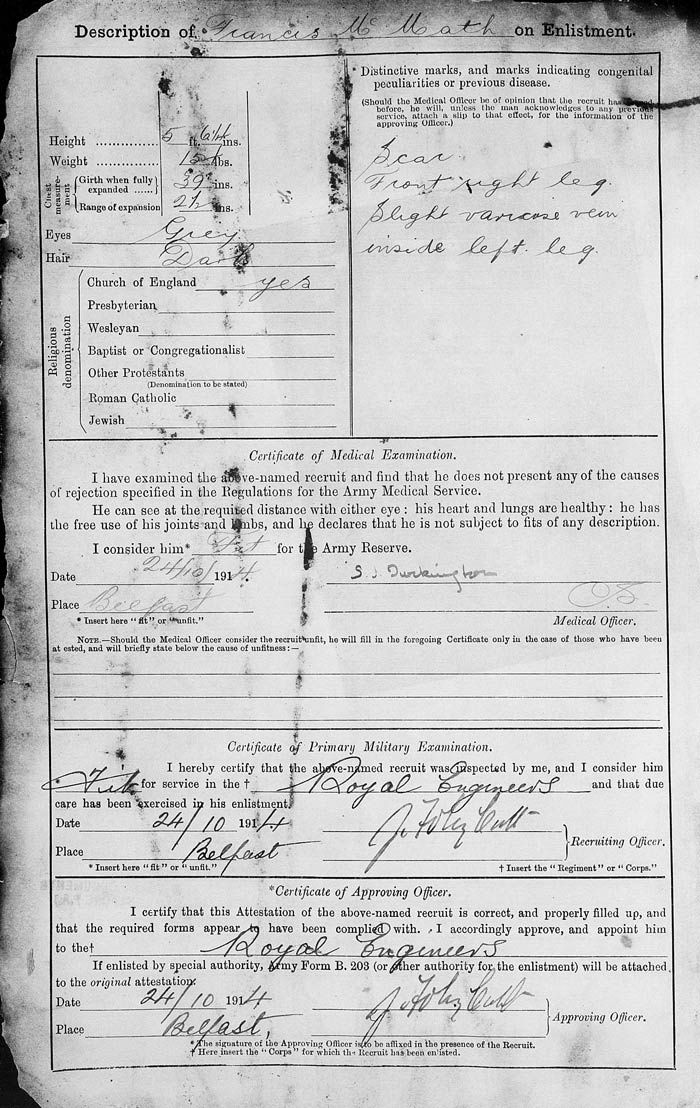 Description of Francis McMath on Enlistment.
Height 5 ft. 6 1/4 ins.
Weight lbs.
Chest measurement
Girth when fully expanded 39 ins.
Range of expansion 2 1/2 ins.
Eyes Grey
Hair Dark
Religious denomination
Church of England yes
Presbyterian
Wesleyan
Baptist or Congregationalist
Other Protestants
(Denomination to be stated)
Roman Catholic
Jewish
Distinctive marks, and marks indicating congenital
peculiarities or previous disease.
(Should the Medical Officer be of opinion that the recruit has served
before, he will, unless the man acknowledges to any previous
service, attach a slip to that effect, for the information of the
approving Officer.)
Scar
Front right leg.
Slight varicose vein
inside left leg.
Certificate of Medical Examination.
I have examined the above-named recruit and find that he does not present any of the causes
of rejection specified in the Regulations for the Army Medical Service.
He can see at the required distance with either eye: his heart and lungs are healthy: he has
the free use of his joints and limbs, and he declares that he is not subject to fits of any description.
I consider him* Fit for the Army Reserve.
Date 24/10/1914.
S. J. Turkington
Place Belfast
* Insert here "fit" or "unfit."
Medical Officer.
NOTE.—Should the Medical Officer consider the recruit unfit, he will fill in the foregoing Certificate only in the case of those who have been
at ested, and will briefly state below the cause of unfitness:—
Certificate of Primary Military Examination.
I hereby certify that the above-named recruit was inspected by me, and I consider him
* Fit for service in the † Royal Engineers and that due
care has been exercised in his enlistment.
Date 24/10 1914
Place Belfast
Recruiting Officer.
* Insert here "fit" or "unfit."
† Insert the "Regiment" or "Corps."
*Certificate of Approving Officer.
I certify that this Attestation of the above-named recruit is correct, and properly filled up, and
that the required forms appear to have been complied with. I accordingly approve, and appoint him
to the† Royal Engineers
If enlisted by special authority, Army Form B. 203 (or other authority for the enlistment) will be attached
to the original attestation.
Date 24/10 1914
Place Belfast,
Approving Officer.
* The signature of the Approving Officer is to be affixed in the presence of the Recruit.
† Here insert the "Corps" for which the Recruit has been enlisted.